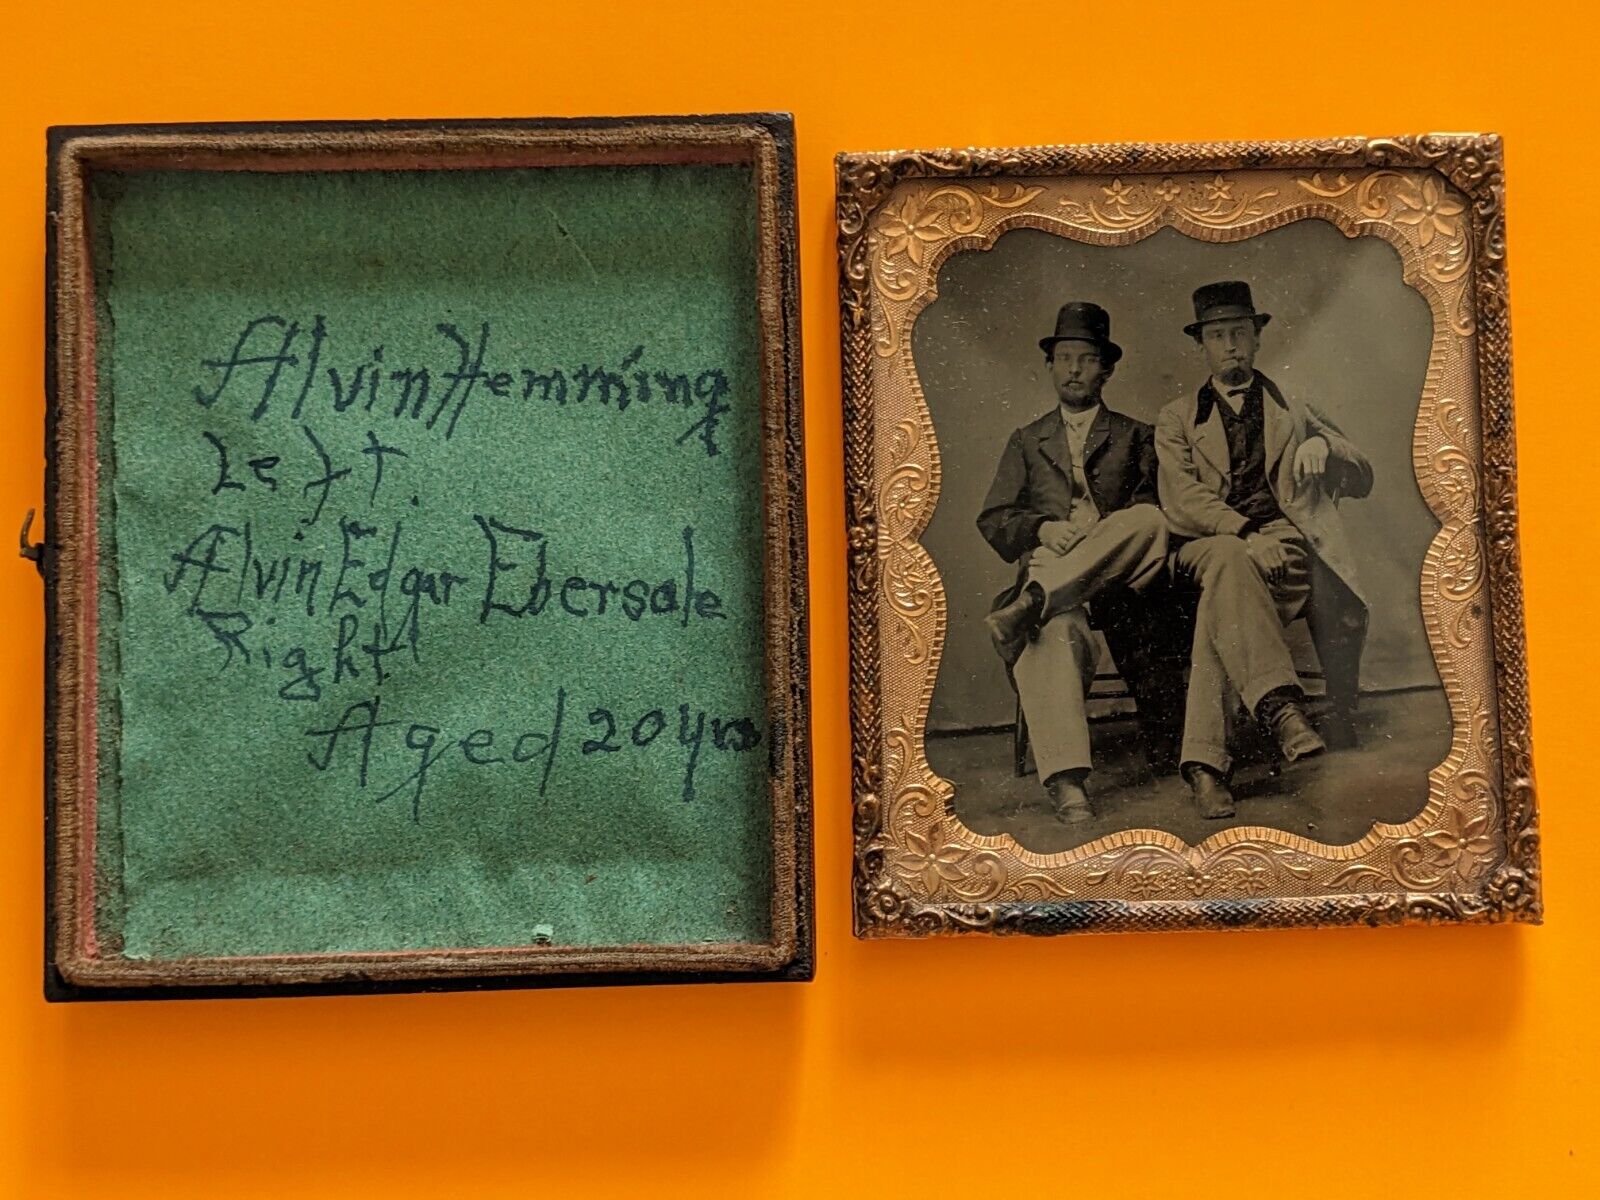 Alvin Hemming
Left.
Alvin Edgar Ebersole
Right.
Aged 20 yrs